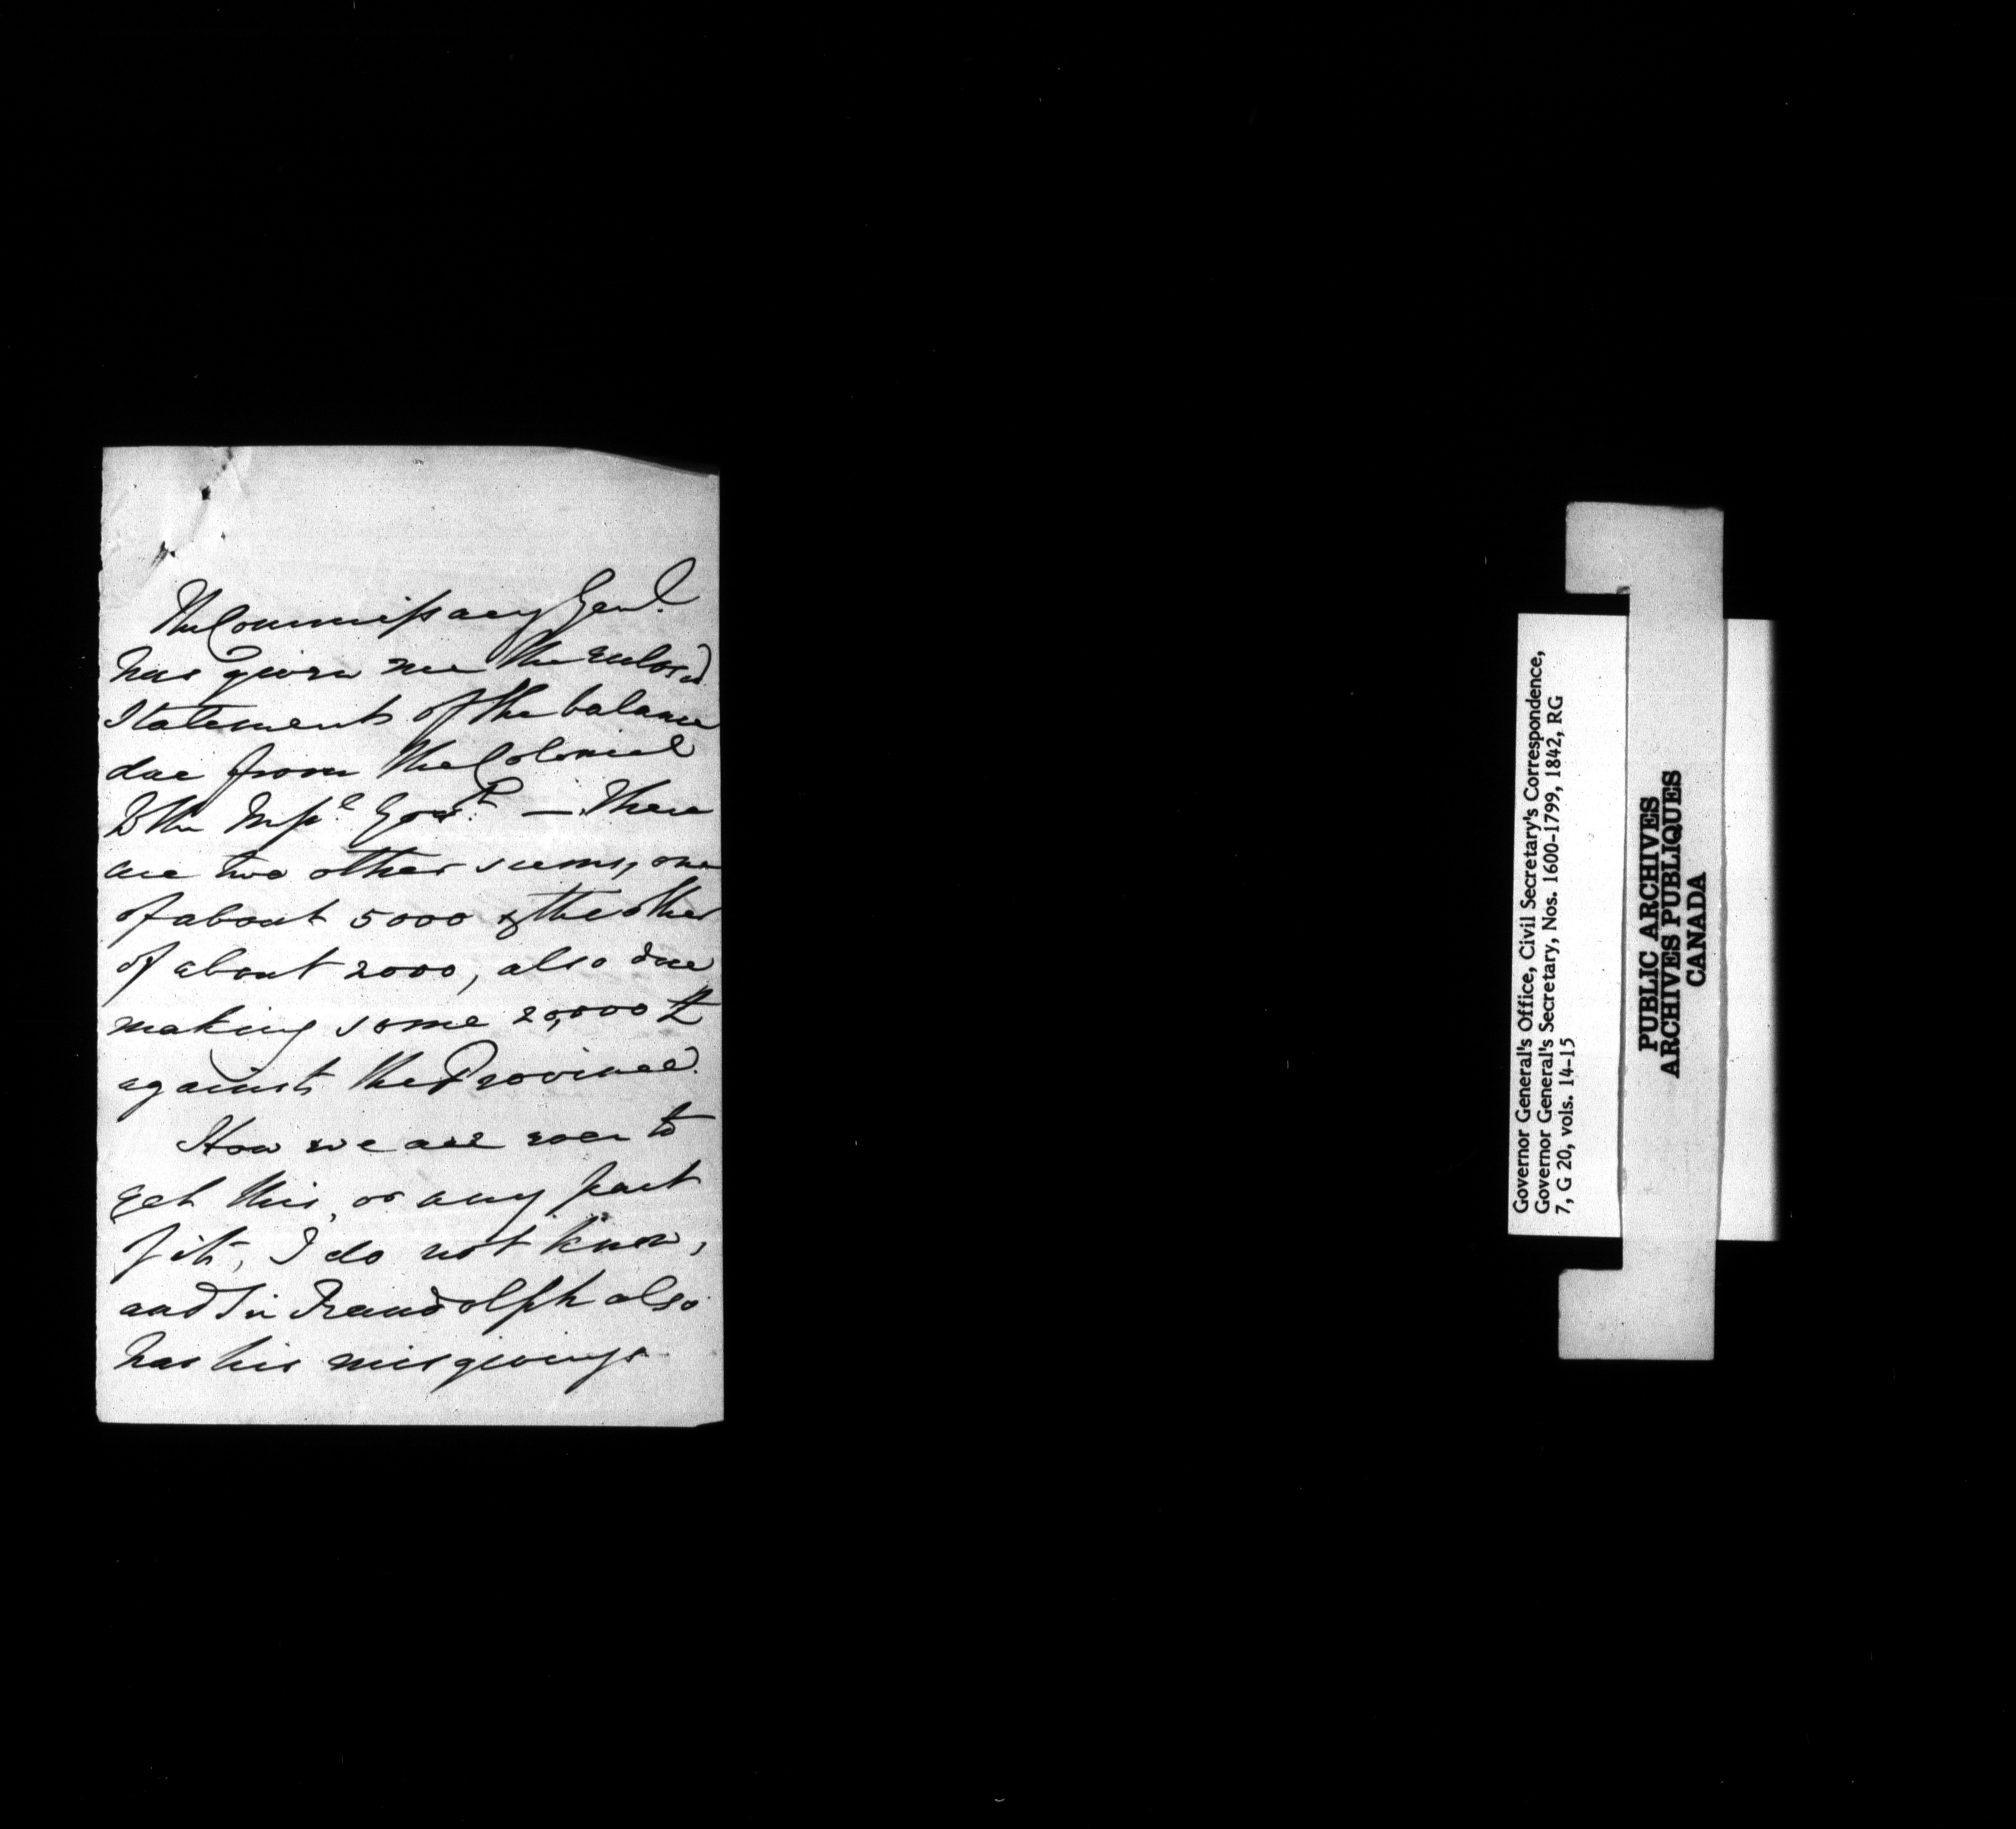 The Commissary Genl.
has given me the enclosed
Statements of the balance
due from the Colonial
to the Impl. Govt. — There
are two other sums, one
of about 5000 & the other
of about 2000, also due
making some 20,000 £
against the Province.
How we are ever to
get this, or any part
of it, I do not know,
and Sir Randolph also
has his misgivings
Governor General's Office, Civil Secretary's Correspondence,
Governor General's Secretary, Nos. 1600-1799, 1842, RG
7, G 20, vols. 14-15
PUBLIC ARCHIVES
ARCHIVES PUBLIQUES
CANADA